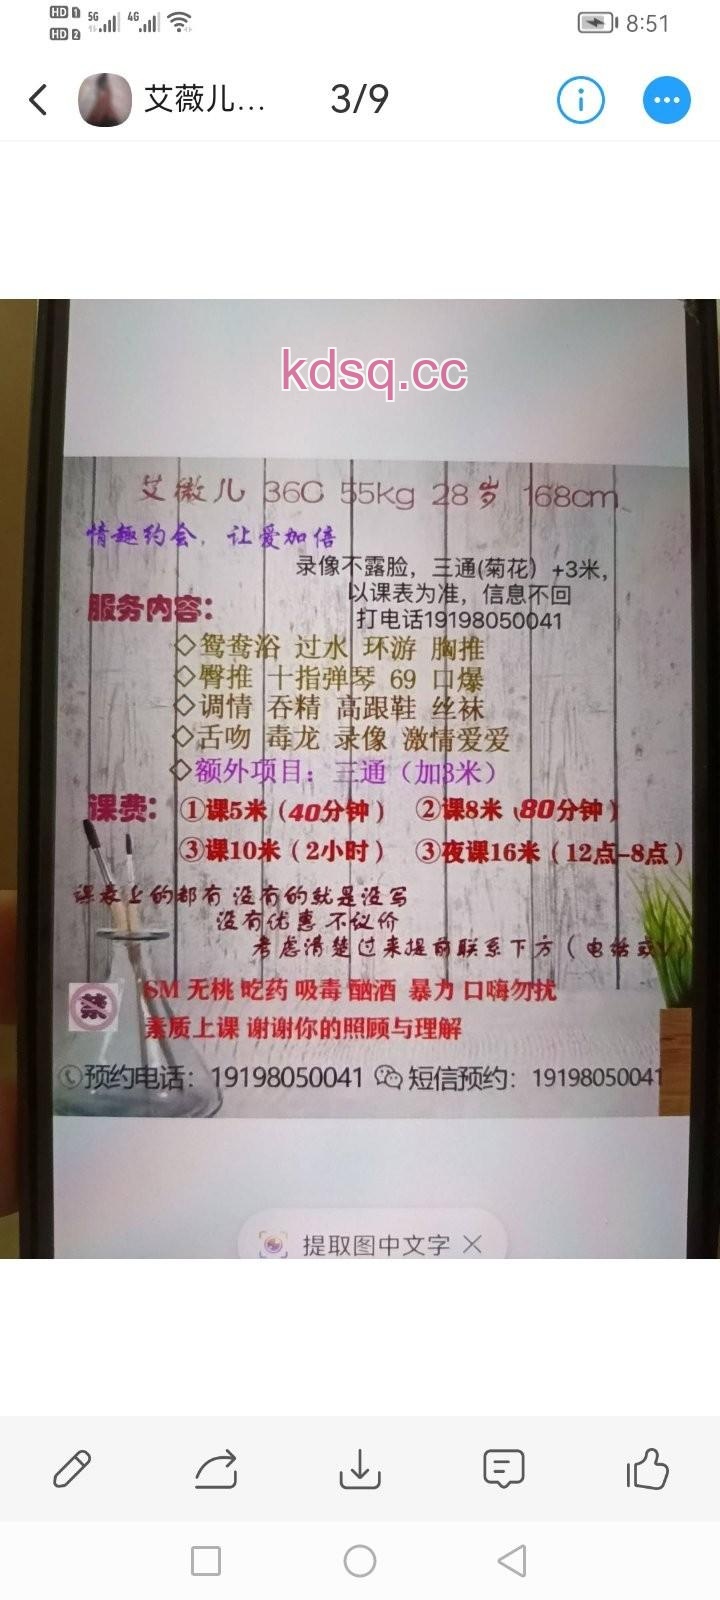 HD 1 5G 4G
HD 2
8:51
艾薇儿... 3/9
kdsq.cc
艾薇儿 36C 55kg 28岁 168cm
情趣约会，让爱加倍
录像不露脸，三通(菊花）+3米，
以课表为准，信息不回
打电话19198050041
服务内容：
◇鸳鸯浴 过水 环游 胸推
◇臀推 十指弹琴 69 口爆
◇调情 吞精 高跟鞋 丝袜
◇舌吻 毒龙 录像 激情爱爱
◇额外项目：三通（加3米）
课费：①课5米（40分钟） ②课8米（80分钟）
③课10米（2小时） ③夜课16米（12点-8点）
课表上的都有 没有的就是没写
没有优惠 不议价
考虑清楚过来提前联系下方（电话或
禁 SM 无桃 吃药 吸毒 酗酒 暴力 口嗨勿扰
素质上课 谢谢你的照顾与理解
预约电话：19198050041 短信预约：19198050041
提取图中文字 ×